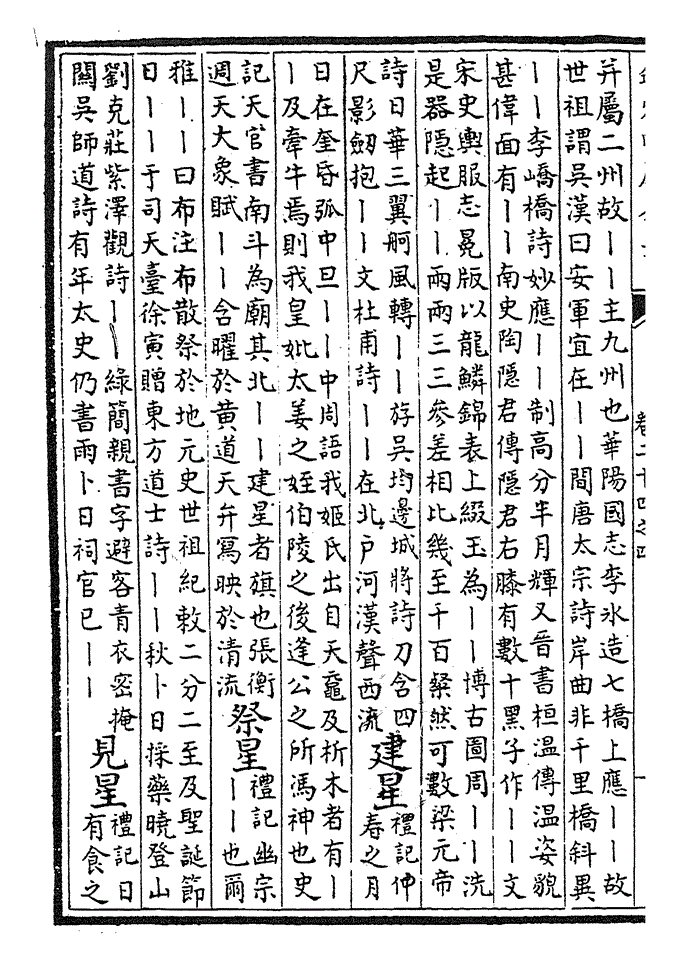 卷二十四之四
并屬二州故——主九州也華陽國志李冰造七橋上應——故
世祖謂吳漢曰安軍宜在——間唐太宗詩岸曲非千里橋斜異
——李嶠橋詩妙應——制高分半月輝又晉書桓溫傳溫姿貌
甚偉面有——南史陶隱君傳隱君右膝有數十黑子作——文
宋史輿服志冕版以龍鱗錦表上綴玉為——博古圖周——洗
是器隱起——兩兩三三參差相比幾至千百粲然可數梁元帝
詩日華三翼舸風轉——斿吳均邊城將詩刀含四
尺影劒抱——文杜甫詩——在北戶河漢聲西流
建星
禮記仲
春之月
日在奎昏弧中旦——中周語我姬氏出自天黿及析木者有—
—及牽牛焉則我皇妣太姜之姪伯陵之後逢公之所馮神也史
記天官書南斗為廟其北——建星者旗也張衡
週天大象賦——含曜於黃道天弁寫映於清流
祭星
禮記幽宗
——也爾
雅——曰布注布散祭於地元史世祖紀敕二分二至及聖誕節
日——于司天臺徐寅贈東方道士詩——秋卜日採藥曉登山
劉克莊紫澤觀詩——綠簡親書字避客青衣密掩
關吳師道詩有年太史仍書雨卜日祠官已——
見星
禮記日
有食之